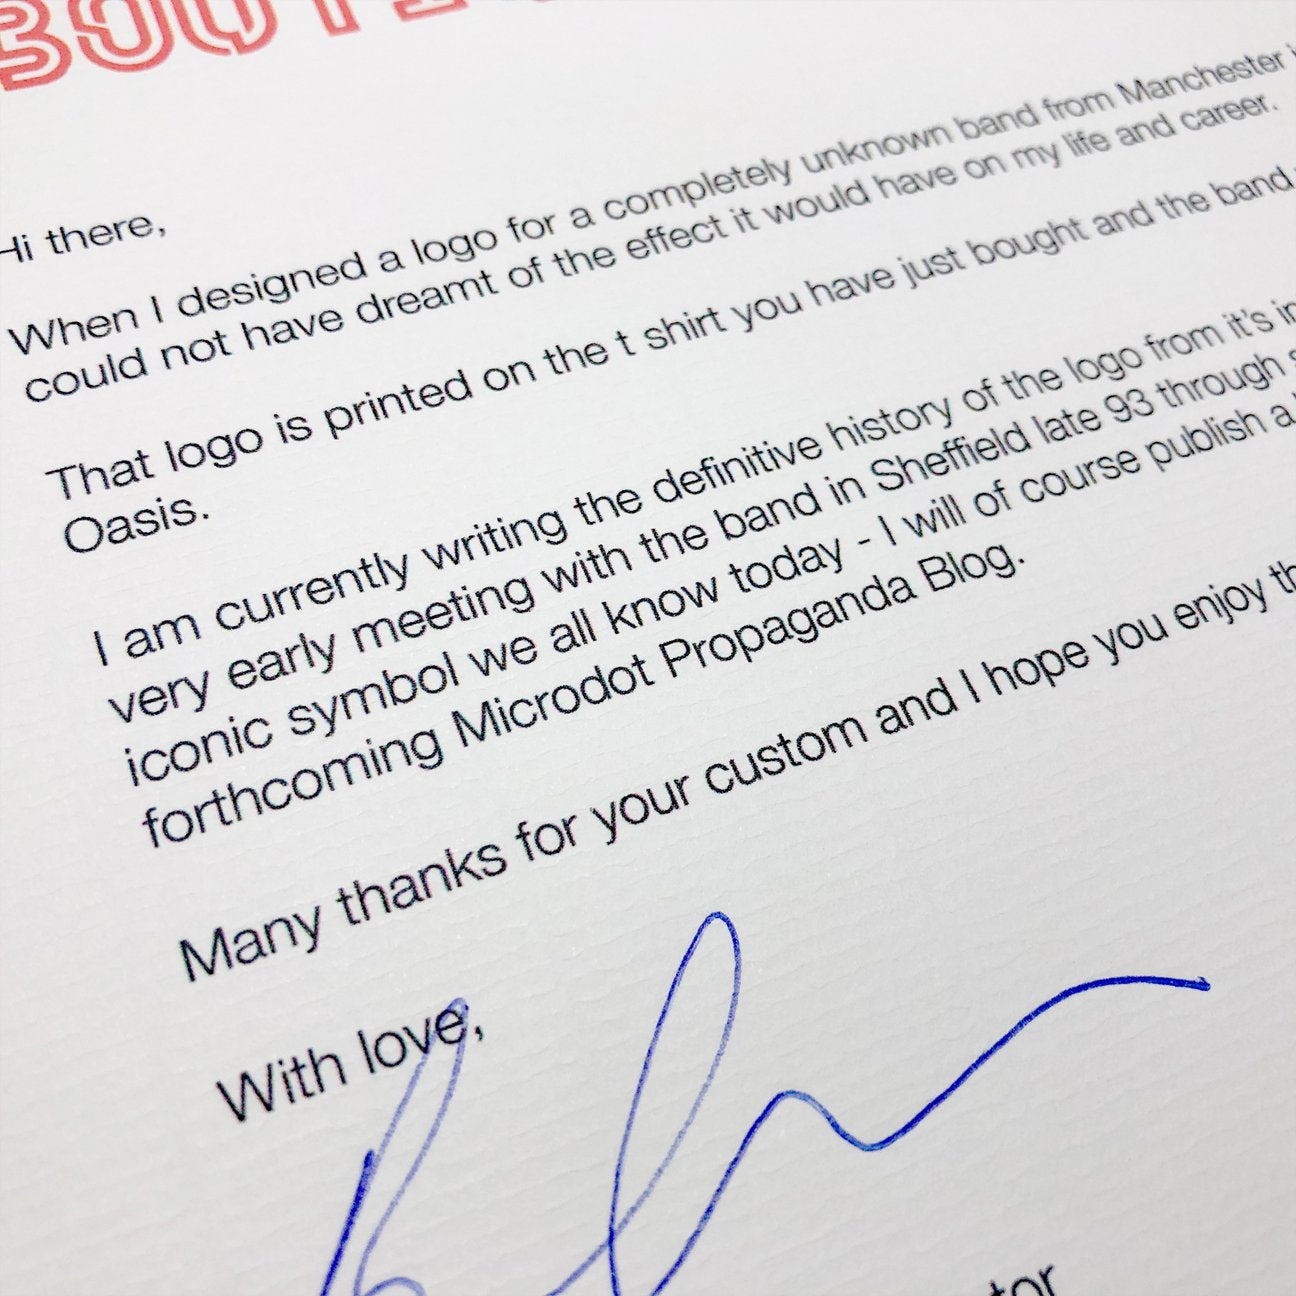 BOUTI
Hi there,
When I designed a logo for a completely unknown band from Manchester
could not have dreamt of the effect it would have on my life and career.
That logo is printed on the t shirt you have just bought and the band
Oasis.
I am currently writing the definitive history of the logo from it's
very early meeting with the band in Sheffield late 93 through
iconic symbol we all know today - I will of course publish a
forthcoming Microdot Propaganda Blog.
Many thanks for your custom and I hope you enjoy
With love,